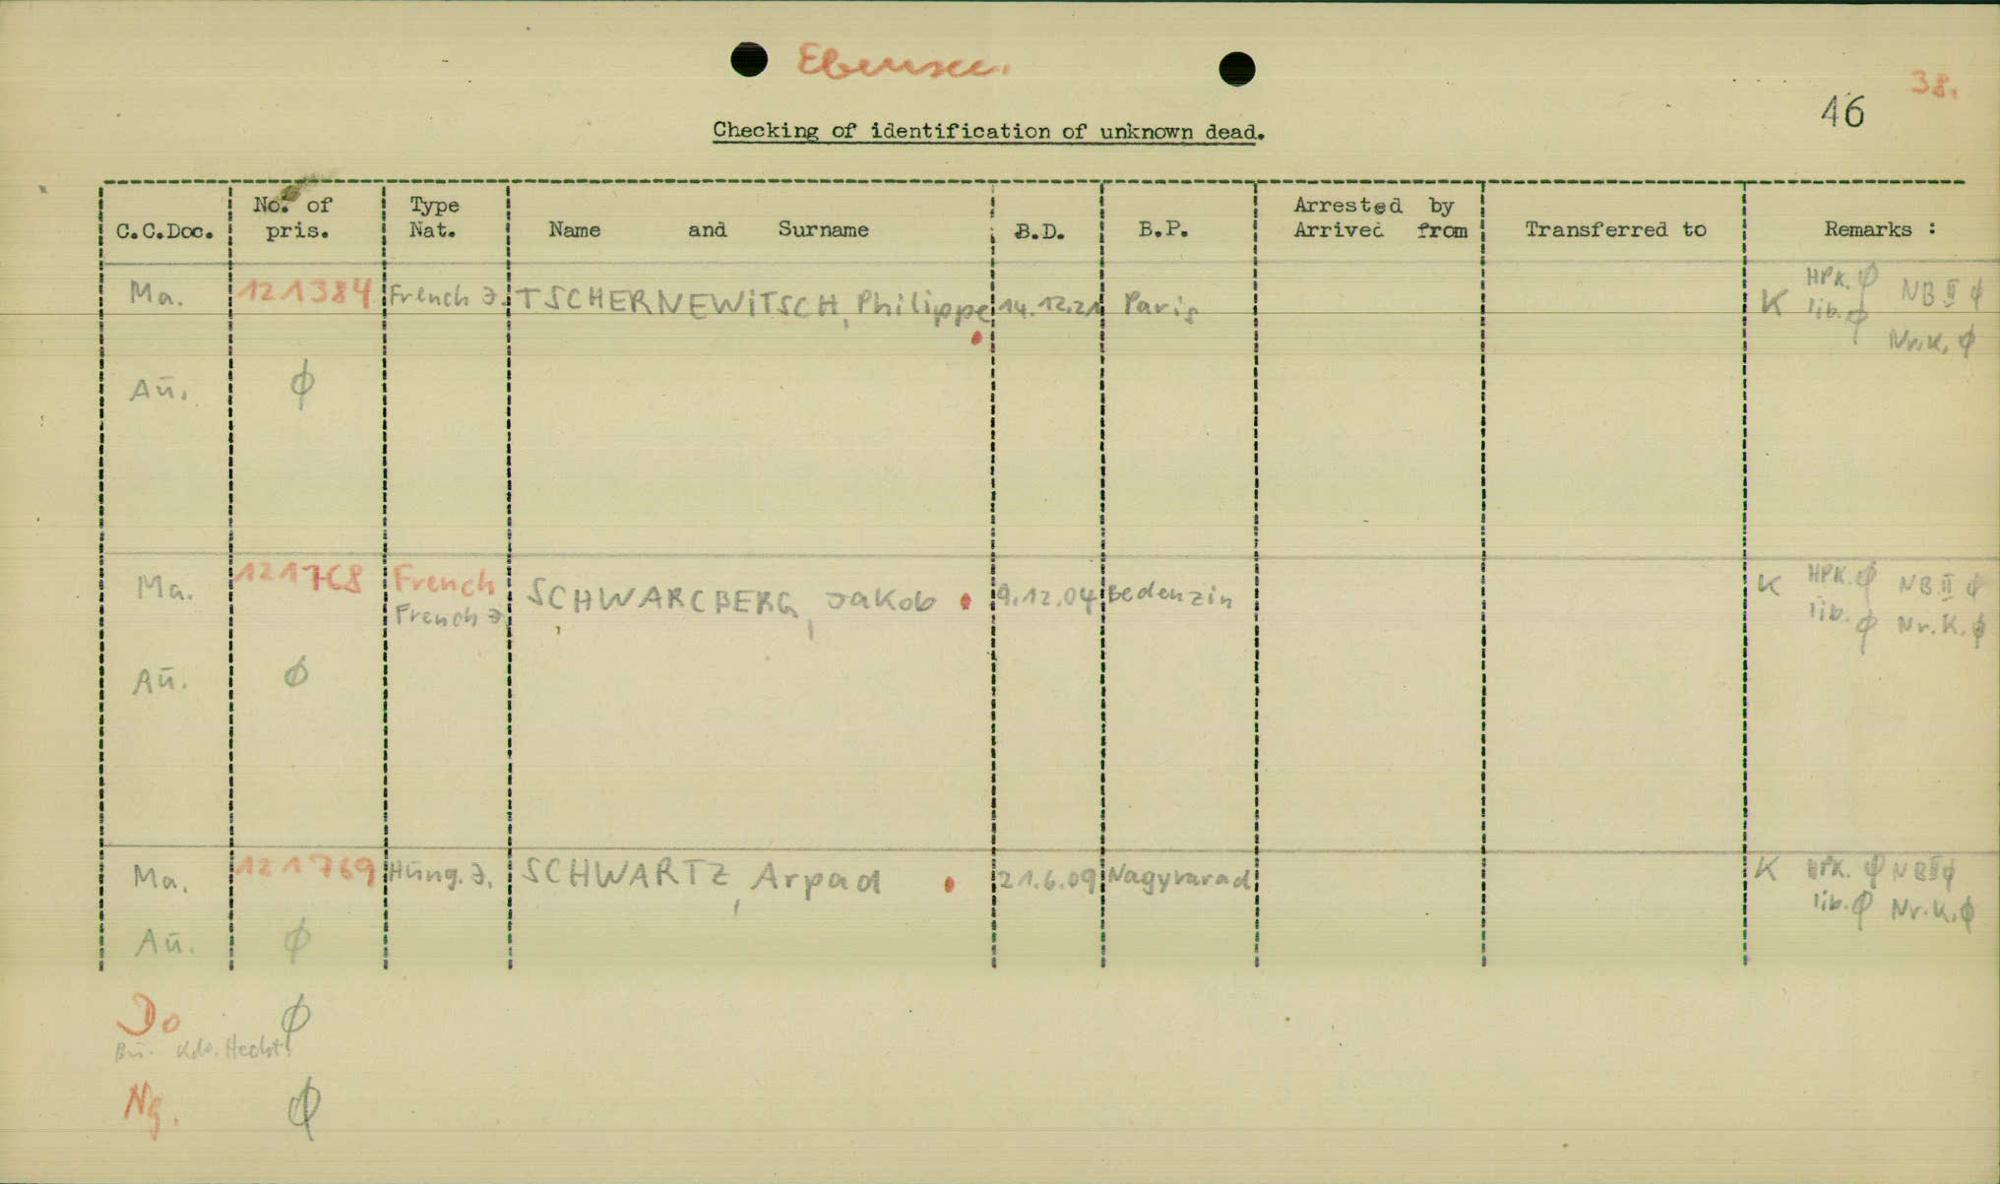 Ebensee.
38.
46
Checking of identification of unknown dead.
C.C.Doc. No. of pris. Type Nat. Name and Surname B.D. B.P. Arrested by Arrived from Transferred to Remarks :
Ma. 121384 French J. TSCHERNEWITSCH, Philippe 14.12.21 Paris K HPK. ϕ NB II ϕ
lib. ϕ Nr.K. ϕ
Aū. ϕ
Ma. 121768 French SCHWARCBERG, Jakob 9.12.04 Bedenzin K HPK. ϕ NB II ϕ
French J. lib. ϕ Nr.K. ϕ
Aū. ϕ
Ma. 121769 Hung. J. SCHWARTZ, Arpad 21.6.09 Nagyvarad K HPK. ϕ NB II ϕ
lib. ϕ Nr.K. ϕ
Aū. ϕ
Do ϕ
Bū. Kdo. Hecht
Ng. ϕ